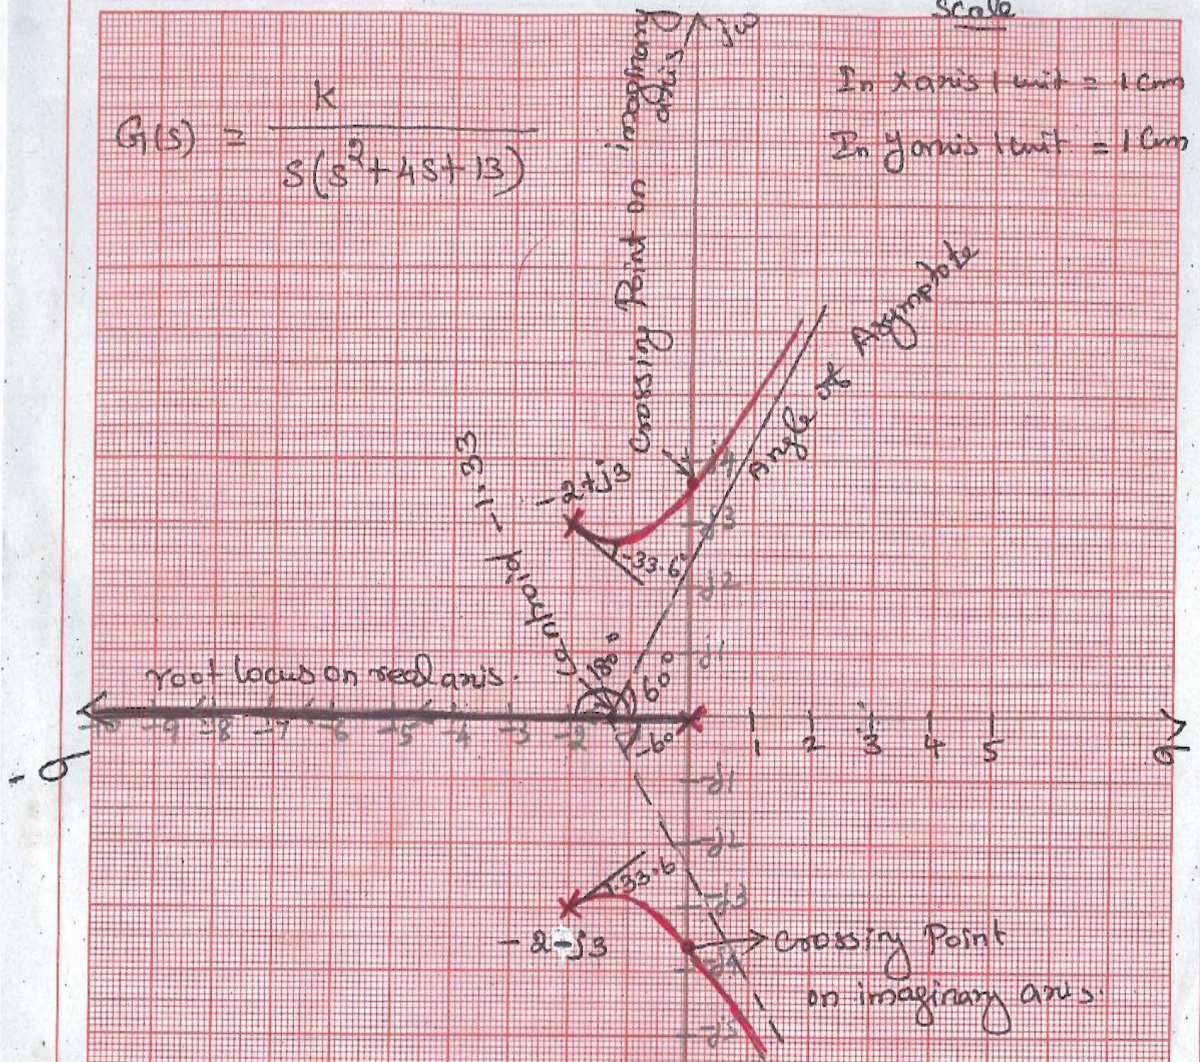 Scale
In x axis 1 unit = 1 Cm
In Y axis 1 unit = 1 Cm
G(s) = K / s(s²+4s+13)
jω
Crossing Point on imaginary axis
Angle of Asymptote
-2+j3
-33.6°
centroid -1.33
j4
j3
j2
j1
root locus on real axis.
180°
60°
-60
-10 -9 -8 -7 -6 -5 -4 -3 -2
1 2 3 4 5
-σ
σ
-j1
-j2
-j3
-j4
-j5
33.6
-2-j3
Crossing Point
on imaginary axis.